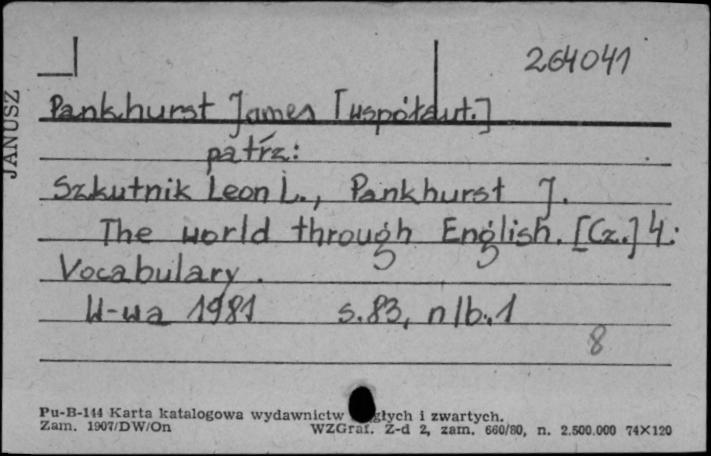 264041
JANUSZ
Pankhurst James [współaut.]
patrz:
Szkutnik Leon L., Pankhurst J.
The world through English. [Cz.] 4:
Vocabulary.
W-wa 1981 s. 83, nlb. 1
8
Pu-B-144 Karta katalogowa wydawnictw głych i zwartych.
Zam. 1907/DW/On WZGraf. Z-d 2, zam. 660/80, n. 2.500.000 74×120